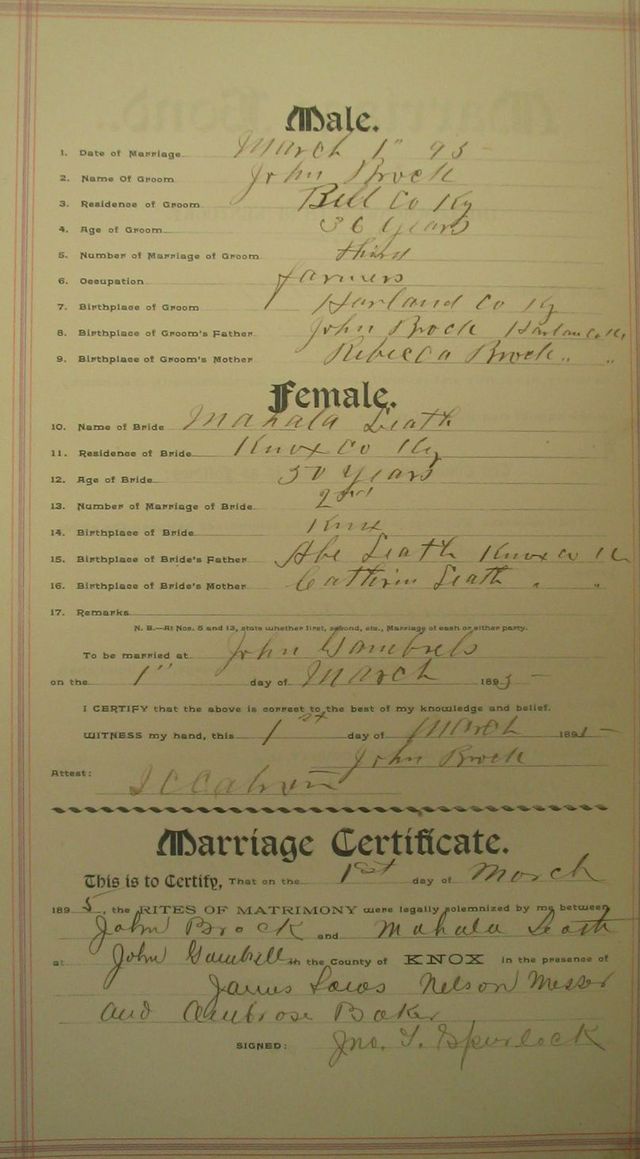 Male.
1. Date of Marriage March 1" 95
2. Name Of Groom John Brock
3. Residence of Groom Bell Co Ky
4. Age of Groom 36 Years
5. Number of Marriage of Groom third
6. Occupation farmers
7. Birthplace of Groom Harland Co Ky
8. Birthplace of Groom's Father John Brock Harlan Co Ky
9. Birthplace of Groom's Mother Rebecca Brock " "
Female.
10. Name of Bride Mahala Leath
11. Residence of Bride Knox Co Ky
12. Age of Bride 30 Years
13. Number of Marriage of Bride 2nd
14. Birthplace of Bride Knox
15. Birthplace of Bride's Father Abe Leath Knox Co Ky
16. Birthplace of Bride's Mother Leath " "
17. Remarks
N. B.—At Nos. 5 and 13, state whether first, second, etc., Marriage of each or either party.
To be married at John Gambrels
on the 1" day of March 189
I CERTIFY that the above is correct to the best of my knowledge and belief.
WITNESS my hand, this 1st day of March 189
John Brock
Attest:
Marriage Certificate.
This is to Certify, That on the 1st day of March
1895, the RITES OF MATRIMONY were legally solemnized by me between
John Brock and Mahala Leath
at John Gambrell in the County of KNOX in the presence of
James Nelson Messer
and Ambrose Baker
SIGNED: Jno. T. Spurlock